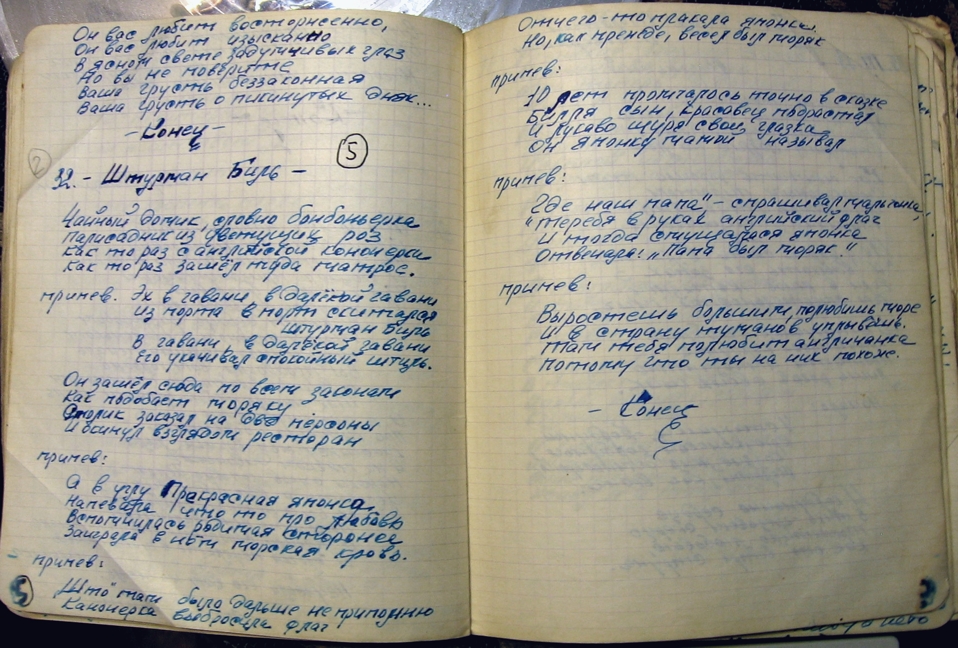 Он вас любит восторженно,
Он вас любит изысканно
В ясном свете задумчивых глаз
Но вы не поверите
Ваша грусть беззаконная
Ваша грусть о покинутых днях...
- Конец -
2
5
32. - Штурман Биль -
Чайный домик, словно бонбоньерка
Палисадник из цветущих роз
Как то раз с английской канонерки
Как то раз зашёл туда матрос.
припев. Эх в гавани, в далёкой гавани
Из порта в порт скитался
штурман Биль
В гавани, в далёкой гавани
Его укачивал спокойный штиль.
Он зашёл сюда по всем законам
Как подобает моряку
Столик заказал на две персоны
И окинул взглядом ресторан
припев:
А в углу Прекрасная японка
Напевала что то про любовь
Вспомнилась родимая сторонка
Заиграла в нём морская кровь.
припев:
Што там было дальше не припомню
Канонерка выбросила флаг
5
Отчего-то плакала японка
Но, как прежде, весел был моряк
припев:
10 лет промчалось точно в сказке
Билля сын, красавец подрастал
И лукаво щуря свои глазки
Он японку мамой называл
припев:
"Где наш папа" - спрашивал мальчонка,
теребя в руках английский флаг
И тогда смущалася японка
Отвечала: "Папа был моряк!"
припев:
Выростешь большим, полюбишь море
И в страну туманов уплывёшь.
Там тебя полюбит англичанка
Потому что ты на них похож.
- Конец -